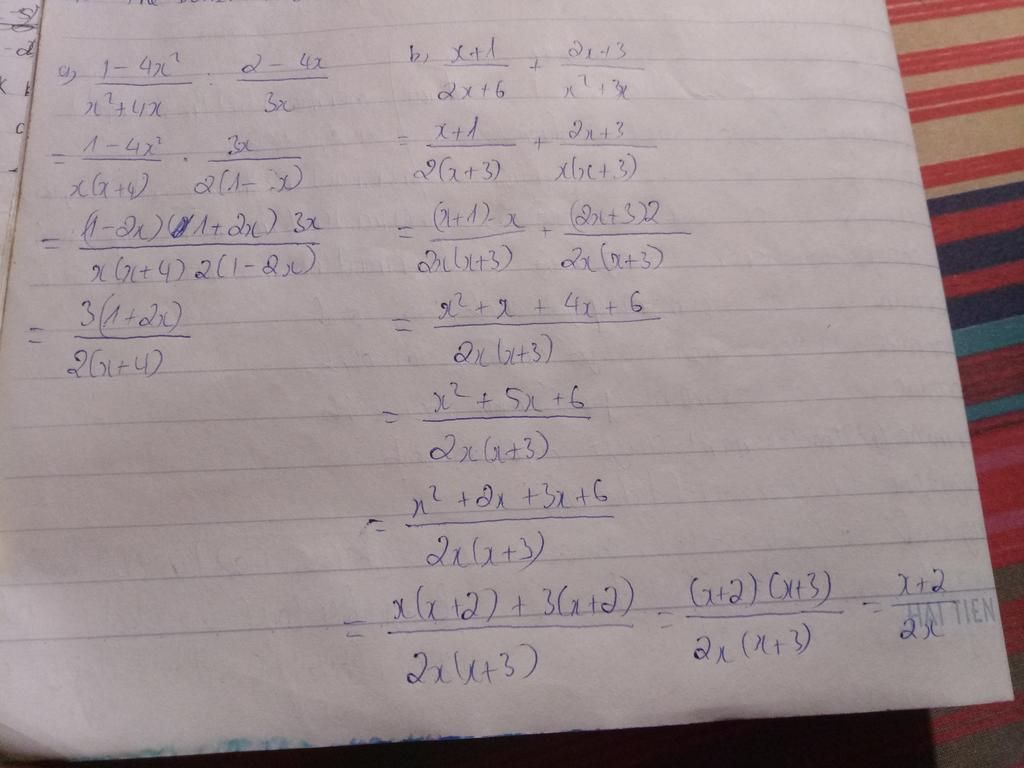 a) \frac{1-4x^2}{x^2+4x} : \frac{2-4x}{3x}
= \frac{1-4x^2}{x(x+4)} \cdot \frac{3x}{2(1- x)}
= \frac{(1-2x)(1+2x) 3x}{x(x+4) 2(1-2x)}
= \frac{3(1+2x)}{2(x+4)}
b, \frac{x+1}{2x+6} + \frac{2x+3}{x^2+3x}
= \frac{x+1}{2(x+3)} + \frac{2x+3}{x(x+3)}
= \frac{(x+1) \cdot x}{2x(x+3)} + \frac{(2x+3)2}{2x(x+3)}
= \frac{x^2+x+4x+6}{2x(x+3)}
= \frac{x^2+5x+6}{2x(x+3)}
= \frac{x^2+2x+3x+6}{2x(x+3)}
= \frac{x(x+2)+3(x+2)}{2x(x+3)} = \frac{(x+2)(x+3)}{2x(x+3)} = \frac{x+2}{2x}
HAI TIEN